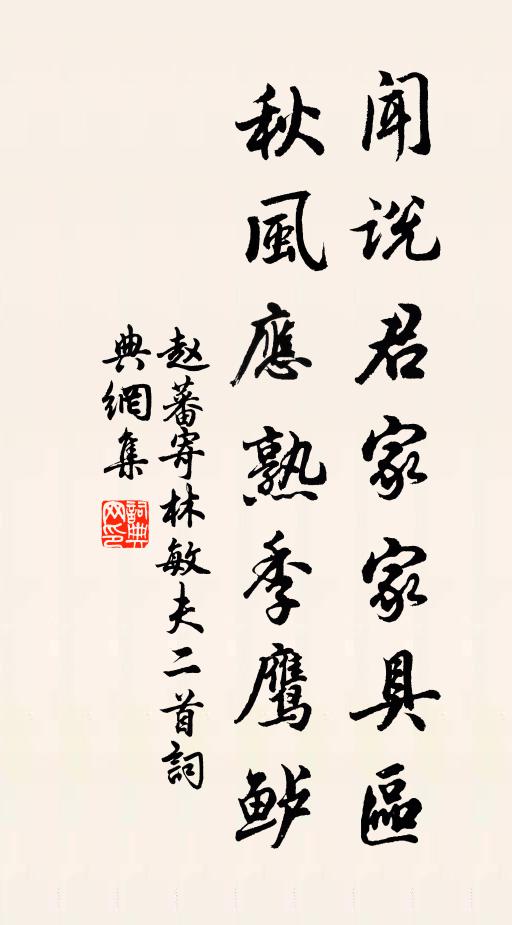 闻说君家家具區
秋風應熟季鹰鲈
赵蕃寄林敏夫二首詞
典網集
詞典
网印